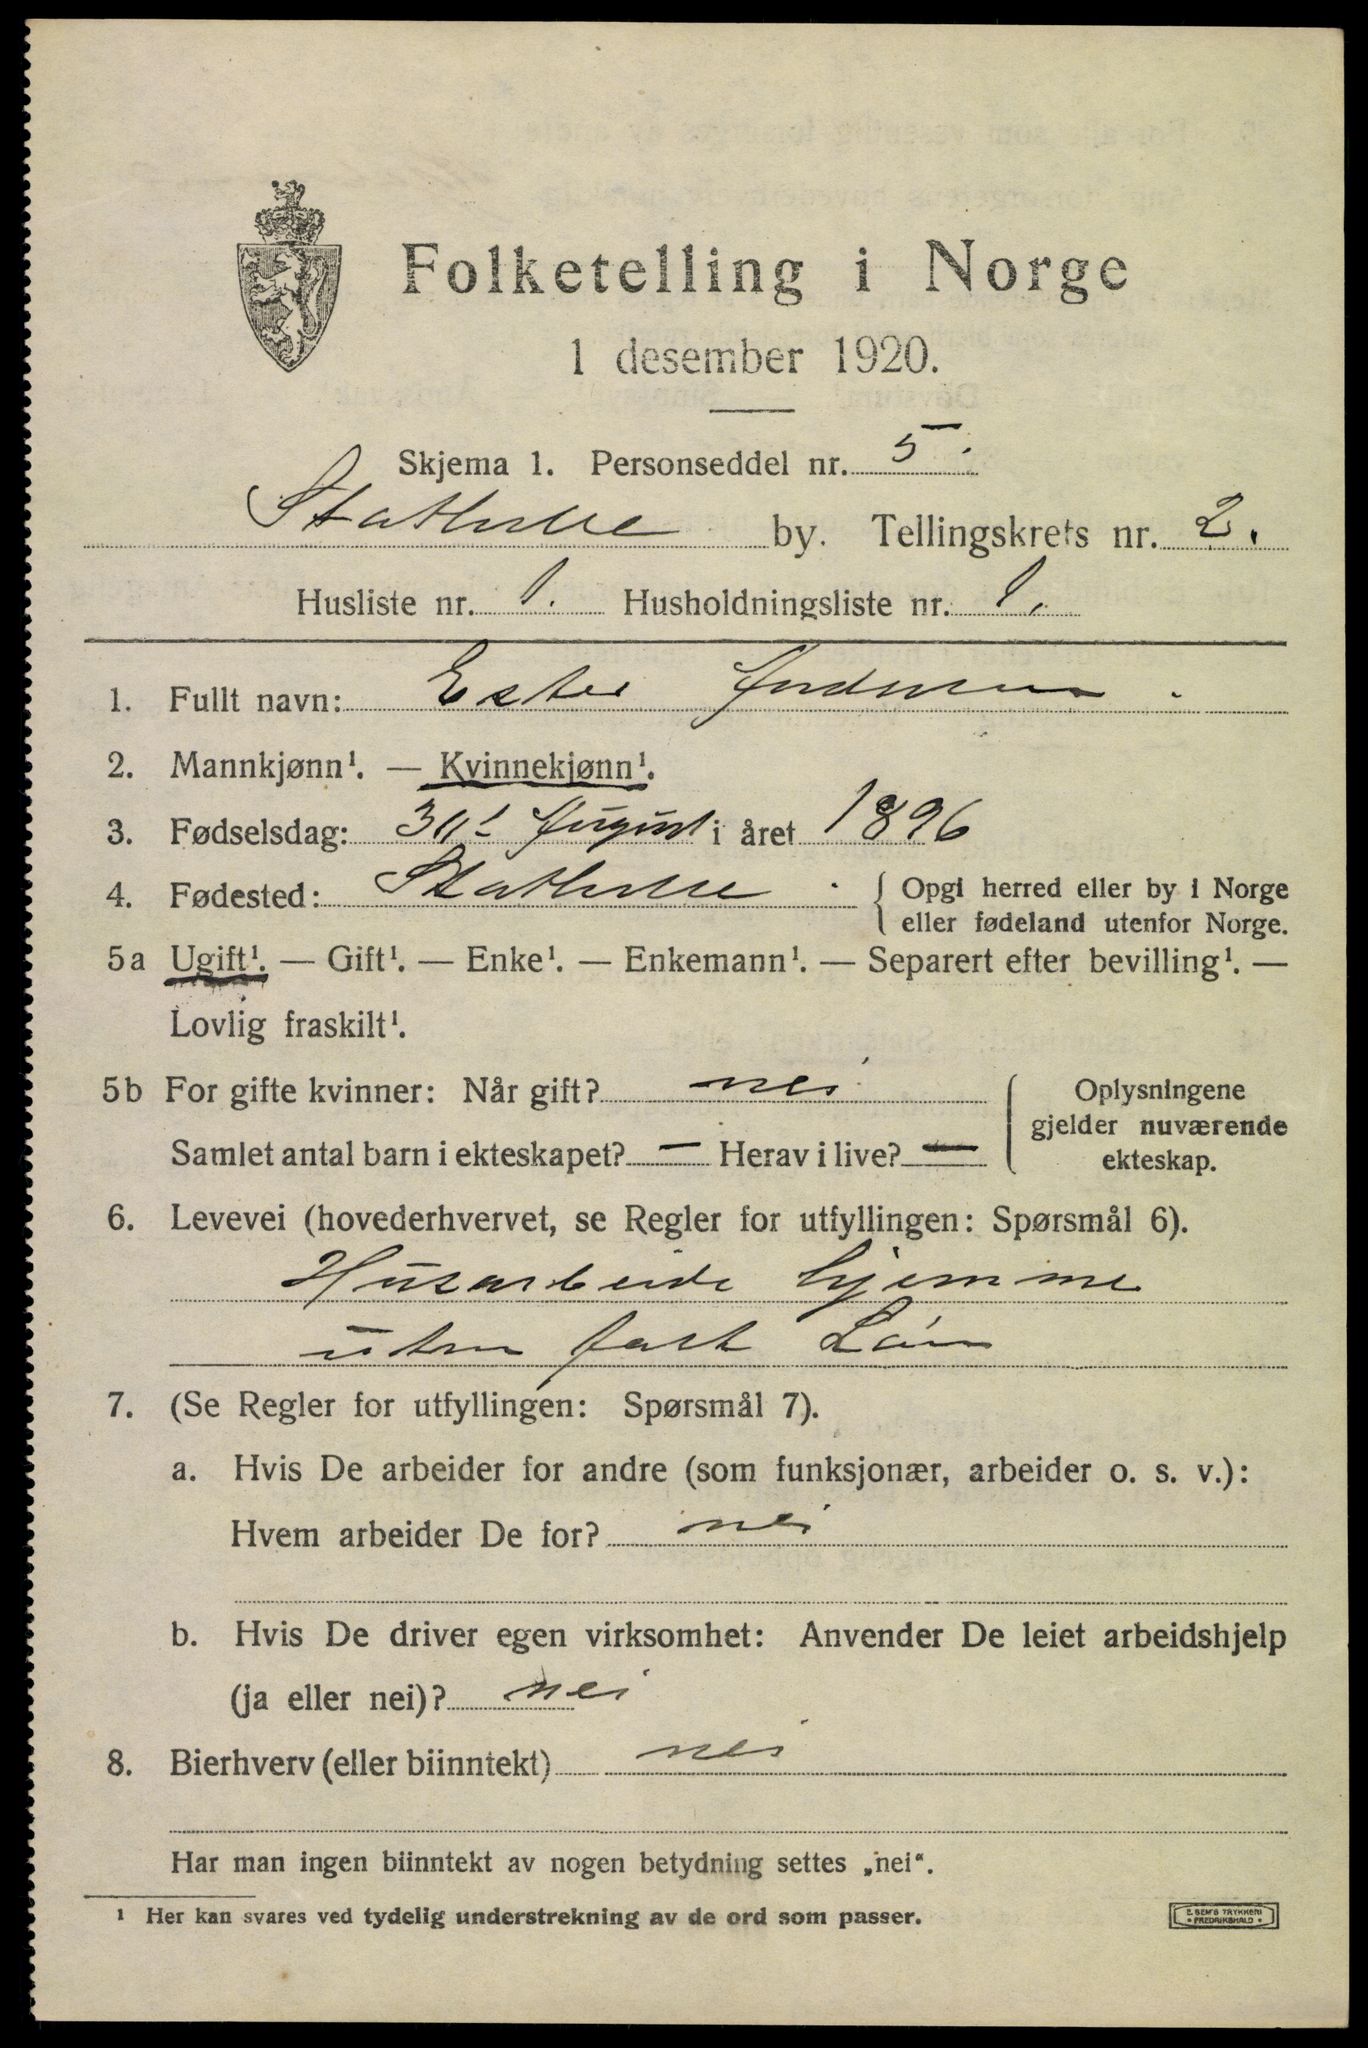 Folketelling i Norge
1 desember 1920.
Skjema 1. Personseddel nr. 5.
Stathelle by. Tellingskrets nr. 2.
Husliste nr. 1. Husholdningsliste nr. 1.
1. Fullt navn: Ester Andersen
2. Mannkjønn¹. — Kvinnekjønn¹.
3. Fødselsdag: August i året 1896
4. Fødested: Stathelle . { Opgi herred eller by i Norge
eller fødeland utenfor Norge.
5a Ugift¹. — Gift¹. — Enke¹. — Enkemann¹. — Separert efter bevilling¹. —
Lovlig fraskilt¹.
5b For gifte kvinner: Når gift? nei
Samlet antal barn i ekteskapet? — Herav i live? —
Oplysningene
gjelder nuværende
ekteskap.
6. Levevei (hovederhvervet, se Regler for utfyllingen: Spørsmål 6).
Husarbeide hjemme
uten fast Løn
7. (Se Regler for utfyllingen: Spørsmål 7).
a. Hvis De arbeider for andre (som funksjonær, arbeider o. s. v.):
Hvem arbeider De for? nei
b. Hvis De driver egen virksomhet: Anvender De leiet arbeidshjelp
(ja eller nei)? nei
8. Bierhverv (eller biinntekt) nei
Har man ingen biinntekt av nogen betydning settes „nei“.
¹ Her kan svares ved tydelig understrekning av de ord som passer.
E. SEM'S TRYKKERI
• FREDRIKSHALD •